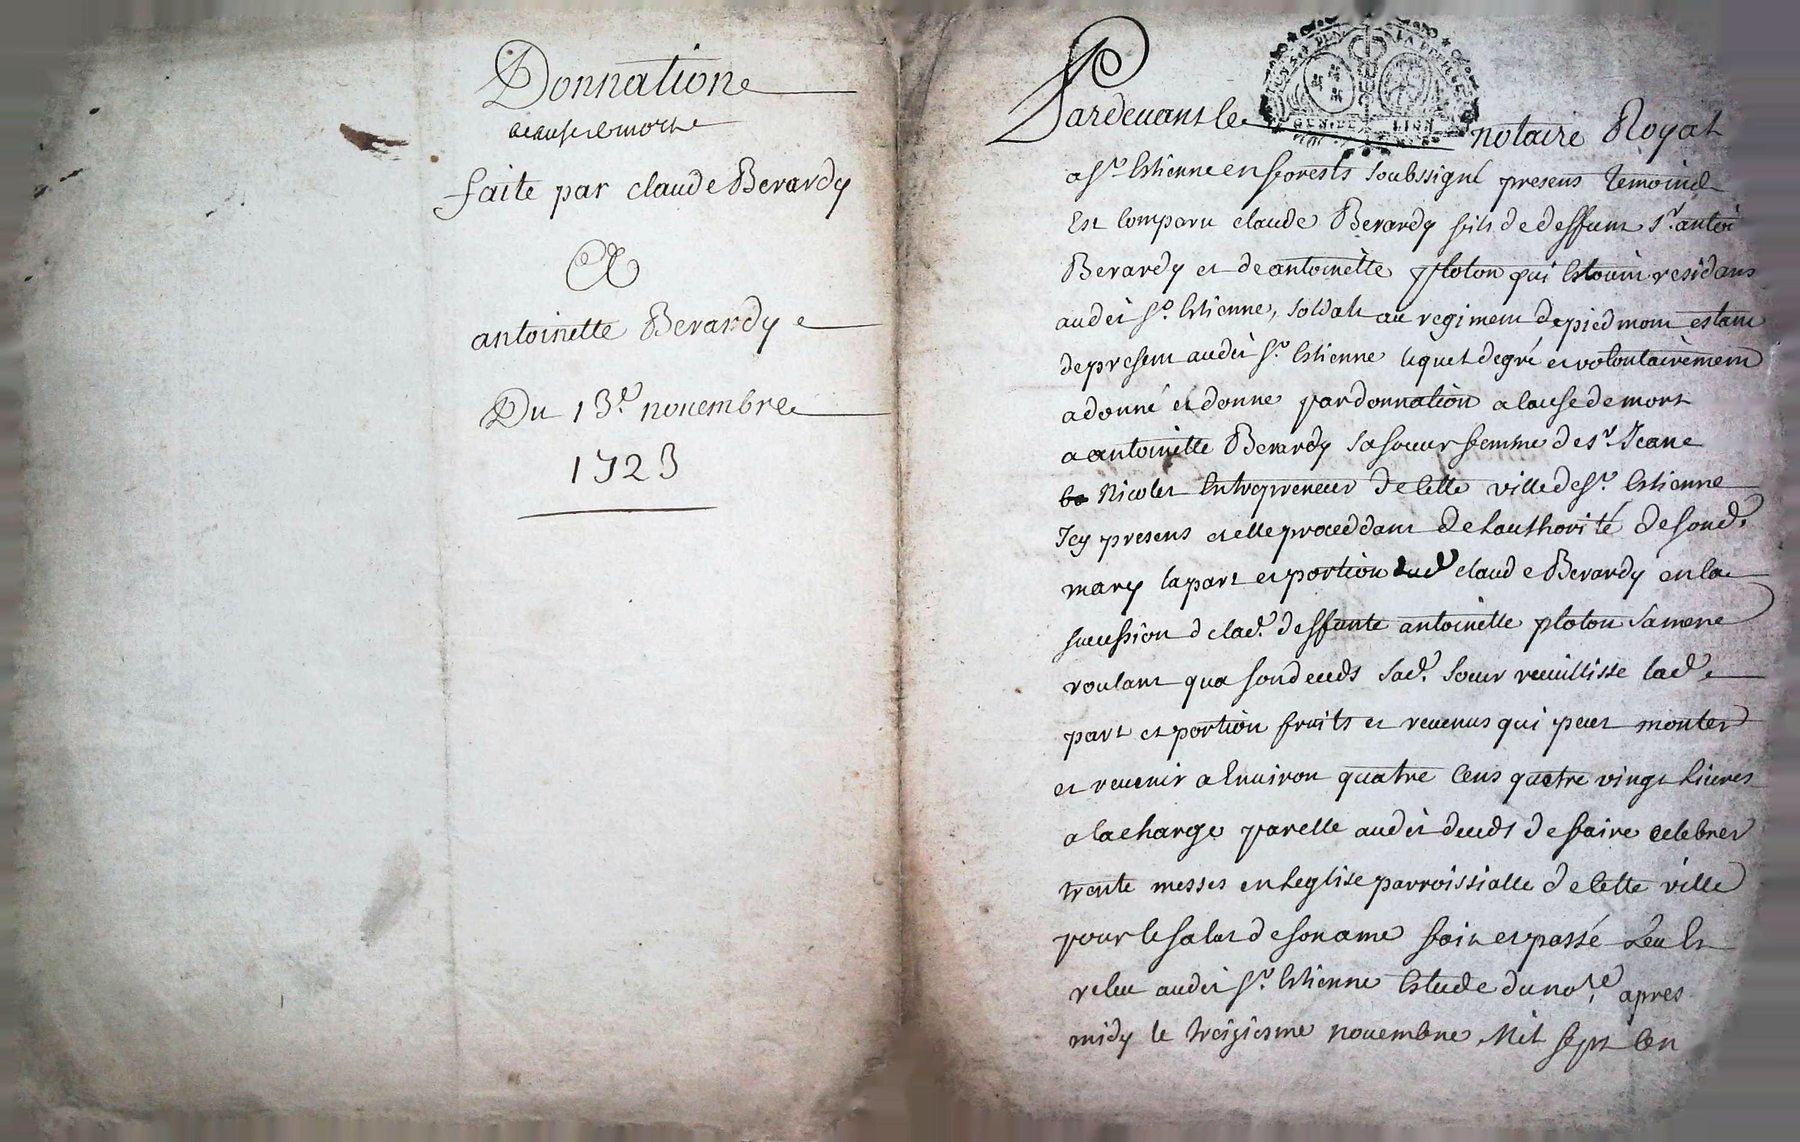 Donnation
acause de mort
faite par claude Berardy
A
antoinette Berardy
Du 13.e nouembre
1723
Pardeuant le notaire Royal
a St. Estienne en forests soubssigné presens temoins
Est Comparu claude Berardy fils de deffunt Sr. antoi
Berardy et de antoinette ploton qui Estoient residans
audit St. Estienne, soldat au regiment de piedmont estant
de present audit St. Estienne lequel de gré et volontairement
a donné et donne par donnation a Cause de mort
a antoinette Berardy sa soeur femme de Sr. Jean
Nicolet Entrepreneur de Cette ville de St. Estienne
Icy presens et elle proceddant de Lauthorité de sond.
mary la part et portion dud claude Berardy en la
sucession de lad. deffunte antoinette ploton sa mere
voulant qua son deceds sad. soeur recuillisse lad.
part et portion fruits et reuenus qui peut monter
et reuenir a Enuiron quatre Cens quatre vingt Liures
a la charge par elle audit deceds de faire celebrer
trente messes en Leglise parroissialle de Cette ville
pour le salut de son ame fait et passé Leu Et
releu audit St. Estienne Estude du no.re apres
midy le treiziesme nouembre Mil sept Cen